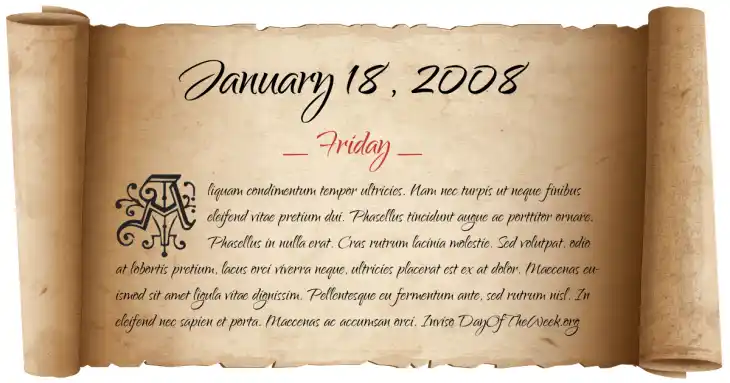 January 18, 2008
— Friday —
Aliquam condimentum tempor ultricies. Nam nec turpis ut neque finibus
eleifend vitae pretium dui. Phasellus tincidunt augue ac porttitor ornare.
Phasellus in nulla erat. Cras rutrum lacinia molestie. Sed volutpat, odio
at lobortis pretium, lacus orci viverra neque, ultricies placerat est ex at dolor. Maecenas eu-
ismod sit amet ligula vitae dignissim. Pellentesque eu fermentum ante, sed rutrum nisl. In
eleifend nec sapien et porta. Maecenas ac accumsan orci. Inviso DayOfTheWeek.org